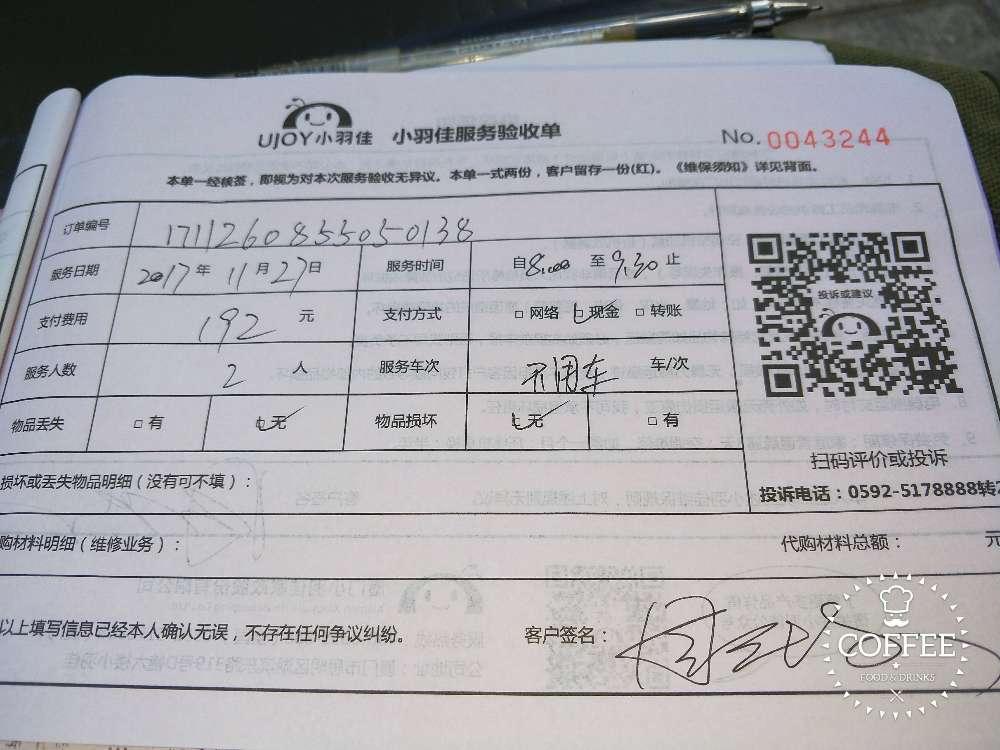 UJOY小羽佳 小羽佳服务验收单 No. 0043244
本单一经核签，即视为对本次服务验收无异议。本单一式两份，客户留存一份(红)。《维保须知》详见背面。
订单编号 1711260855050138
服务日期 2017 年 11 月 27 日 服务时间 自 8:00 至 9:30 止
支付费用 192 元 支付方式 □ 网络 ☑ 现金 □ 转账
服务人数 2 人 服务车次 不用车 车/次
物品丢失 □ 有 ☑ 无 物品损坏 ☑ 无 □ 有
投诉或建议
扫码评价或投诉
投诉电话：0592-5178888转2
损坏或丢失物品明细（没有可不填）：
购材料明细（维修业务）： 代购材料总额： 元
以上填写信息已经本人确认无误，不存在任何争议纠纷。 客户签名：
COFFEE
FOOD & DRINKS